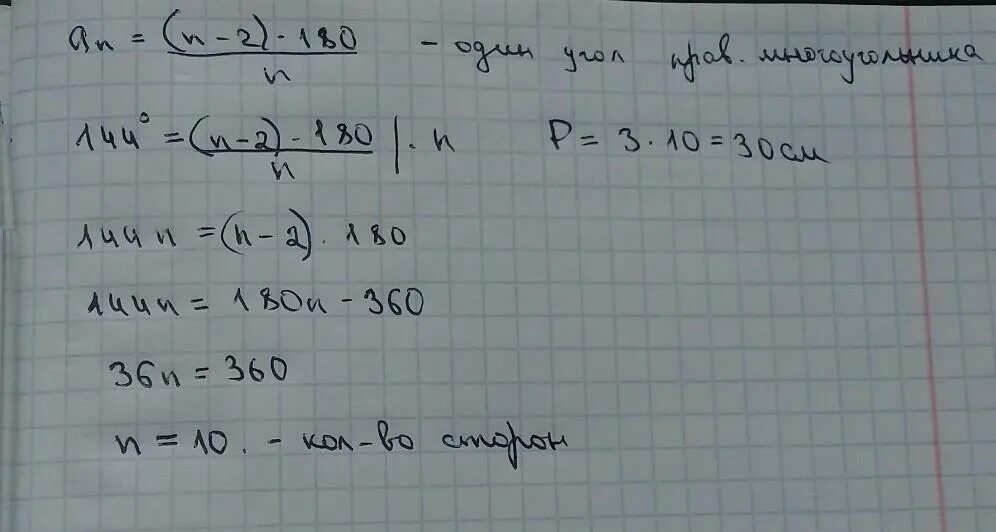 an = (n-2)·180 / n - один угол прав. многоугольника
144° = (n-2)·180 / n |·n P = 3·10 = 30см
144n = (n-2)·180
144n = 180n - 360
36n = 360
n = 10. - кол-во сторон